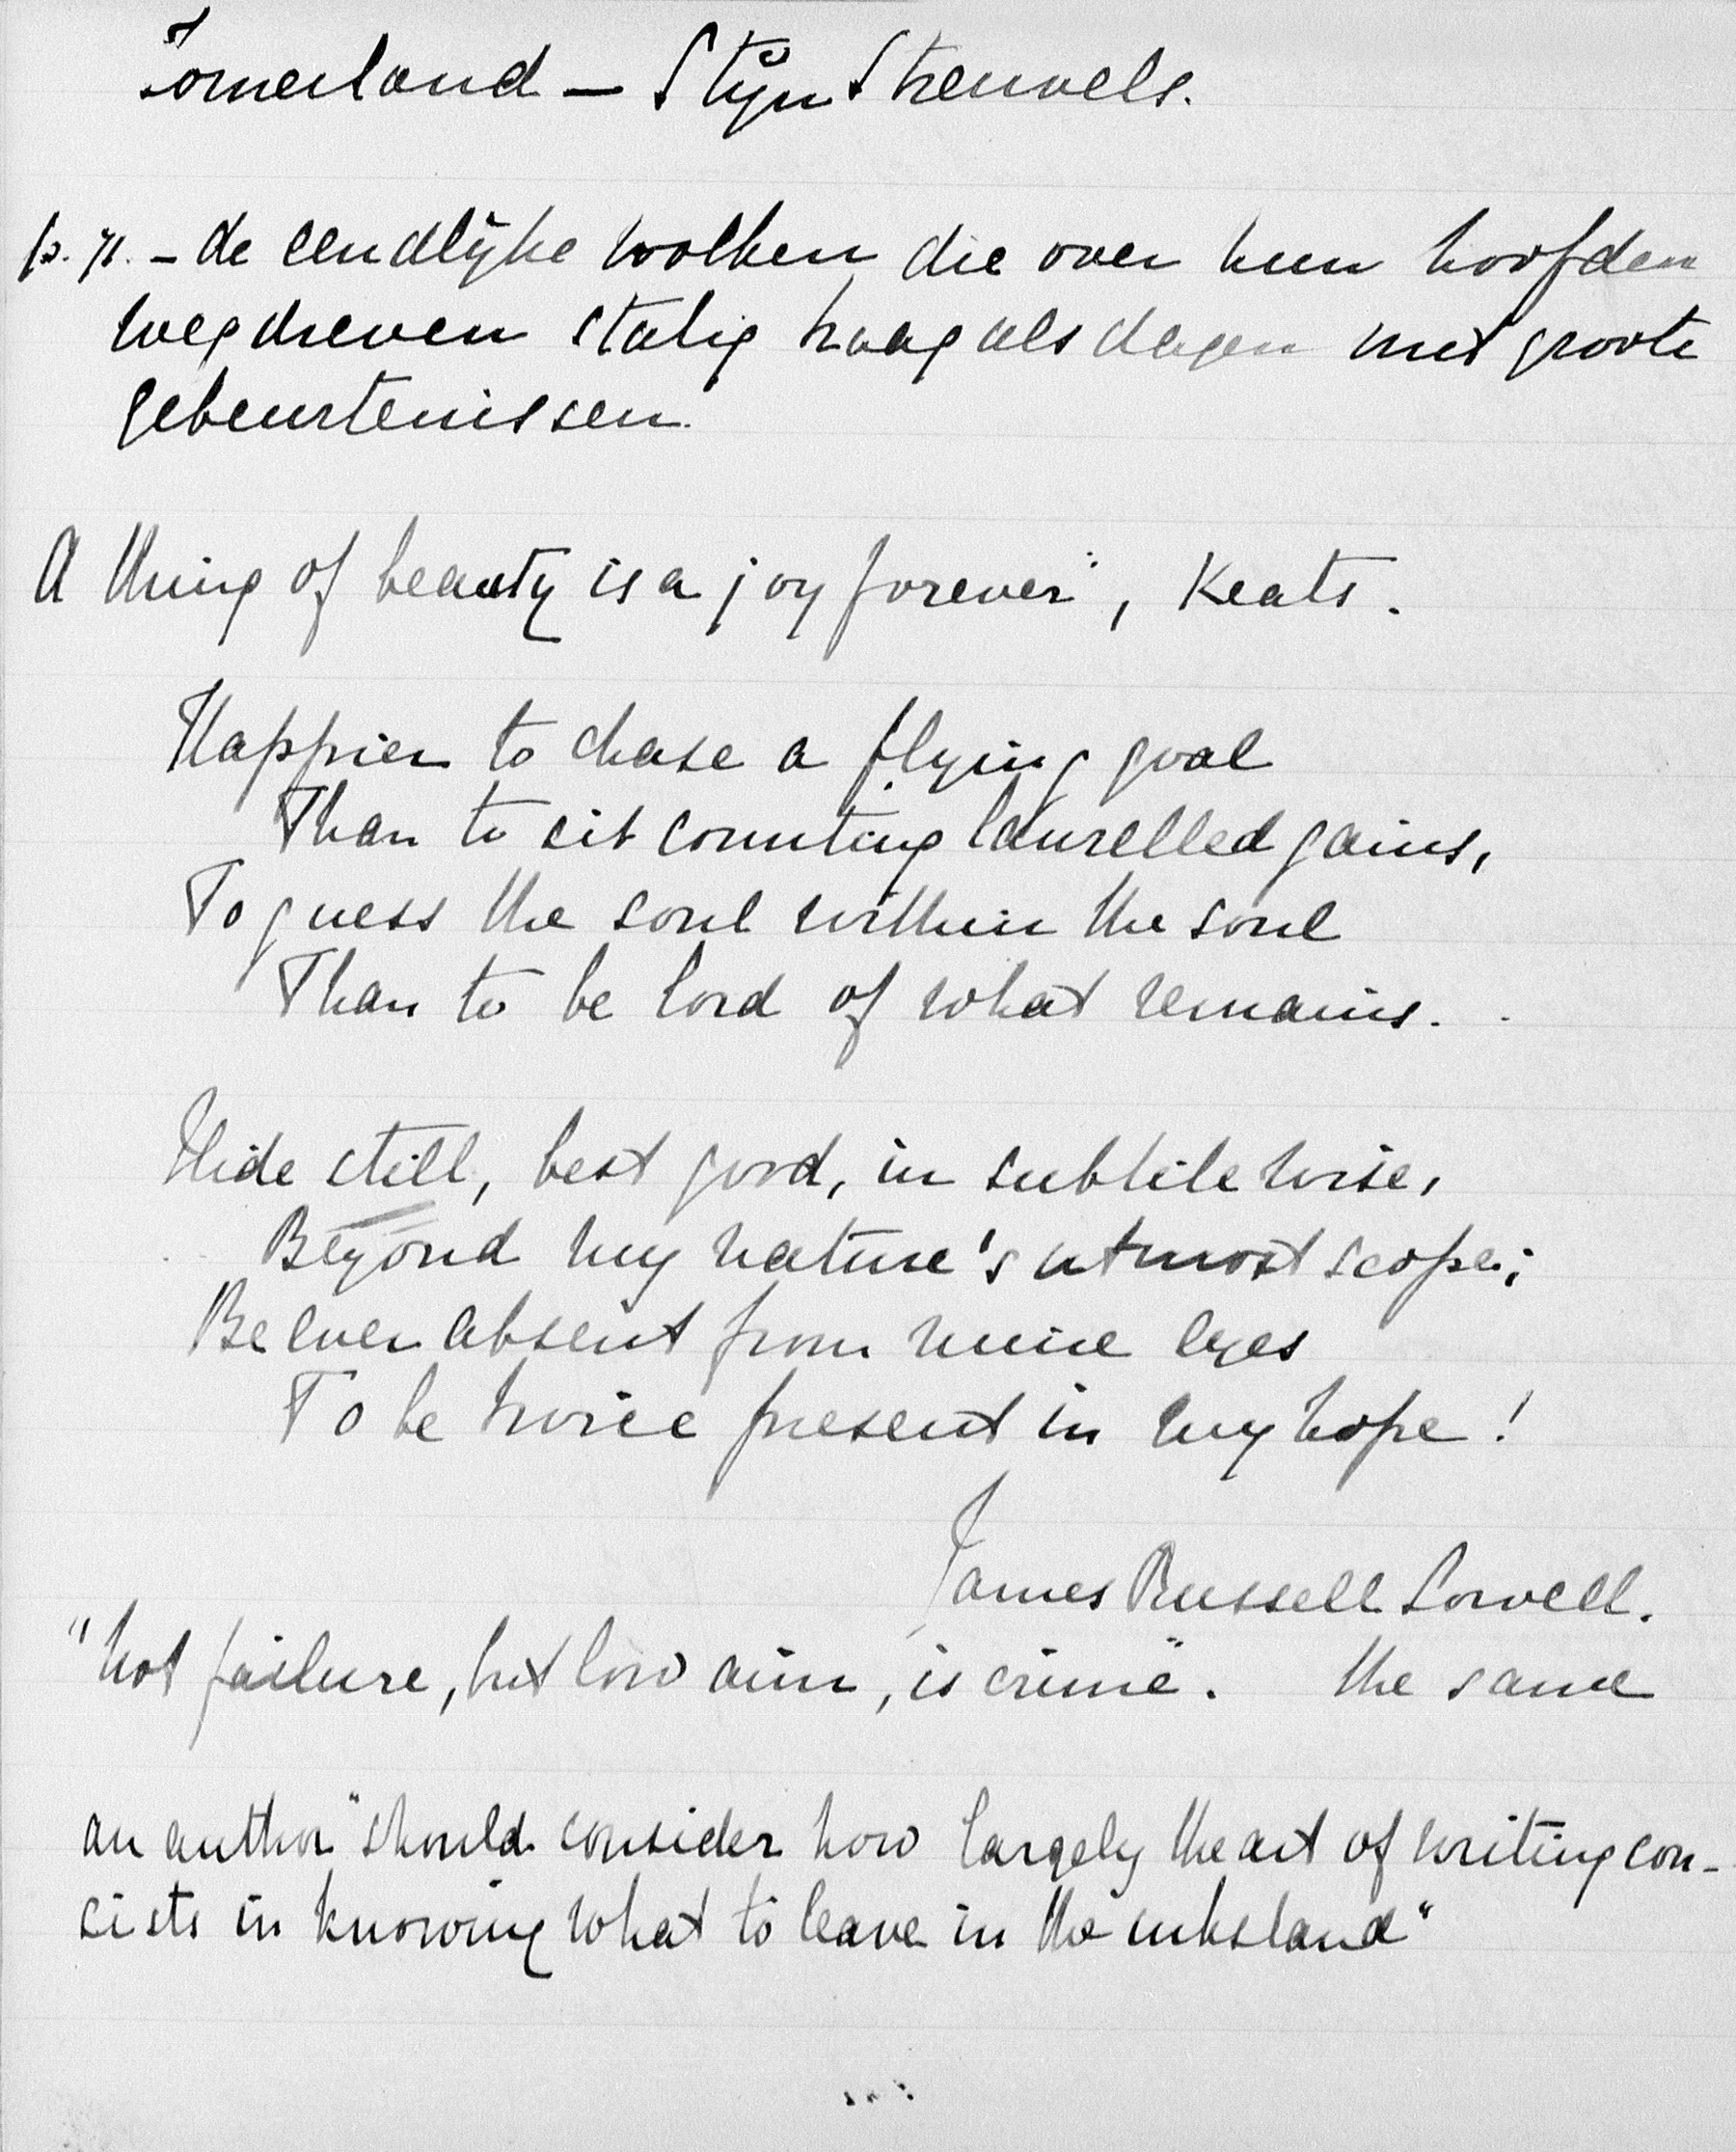 Zomerland – Stijn Streuvels.
p. 71. – de eendlijke wolken die over hun hoofden
wegdreven statig traag als dagen met groote
gebeurtenissen.
A thing of beauty is a joy forever", Keats.
Happier to chase a flying goal
Than to sit counting laurelled gains,
To guess the soul within the soul
Than to be lord of what remains.
Hide still, best good, in subtile wise,
Beyond my nature's utmost scope;
Be ever absent from mine eyes
To be twice present in my hope!
James Russell Lowell.
"Not failure, but low aim, is crime". the same
an author "should consider how largely the art of writing con-
sists in knowing what to leave in the inkstand"